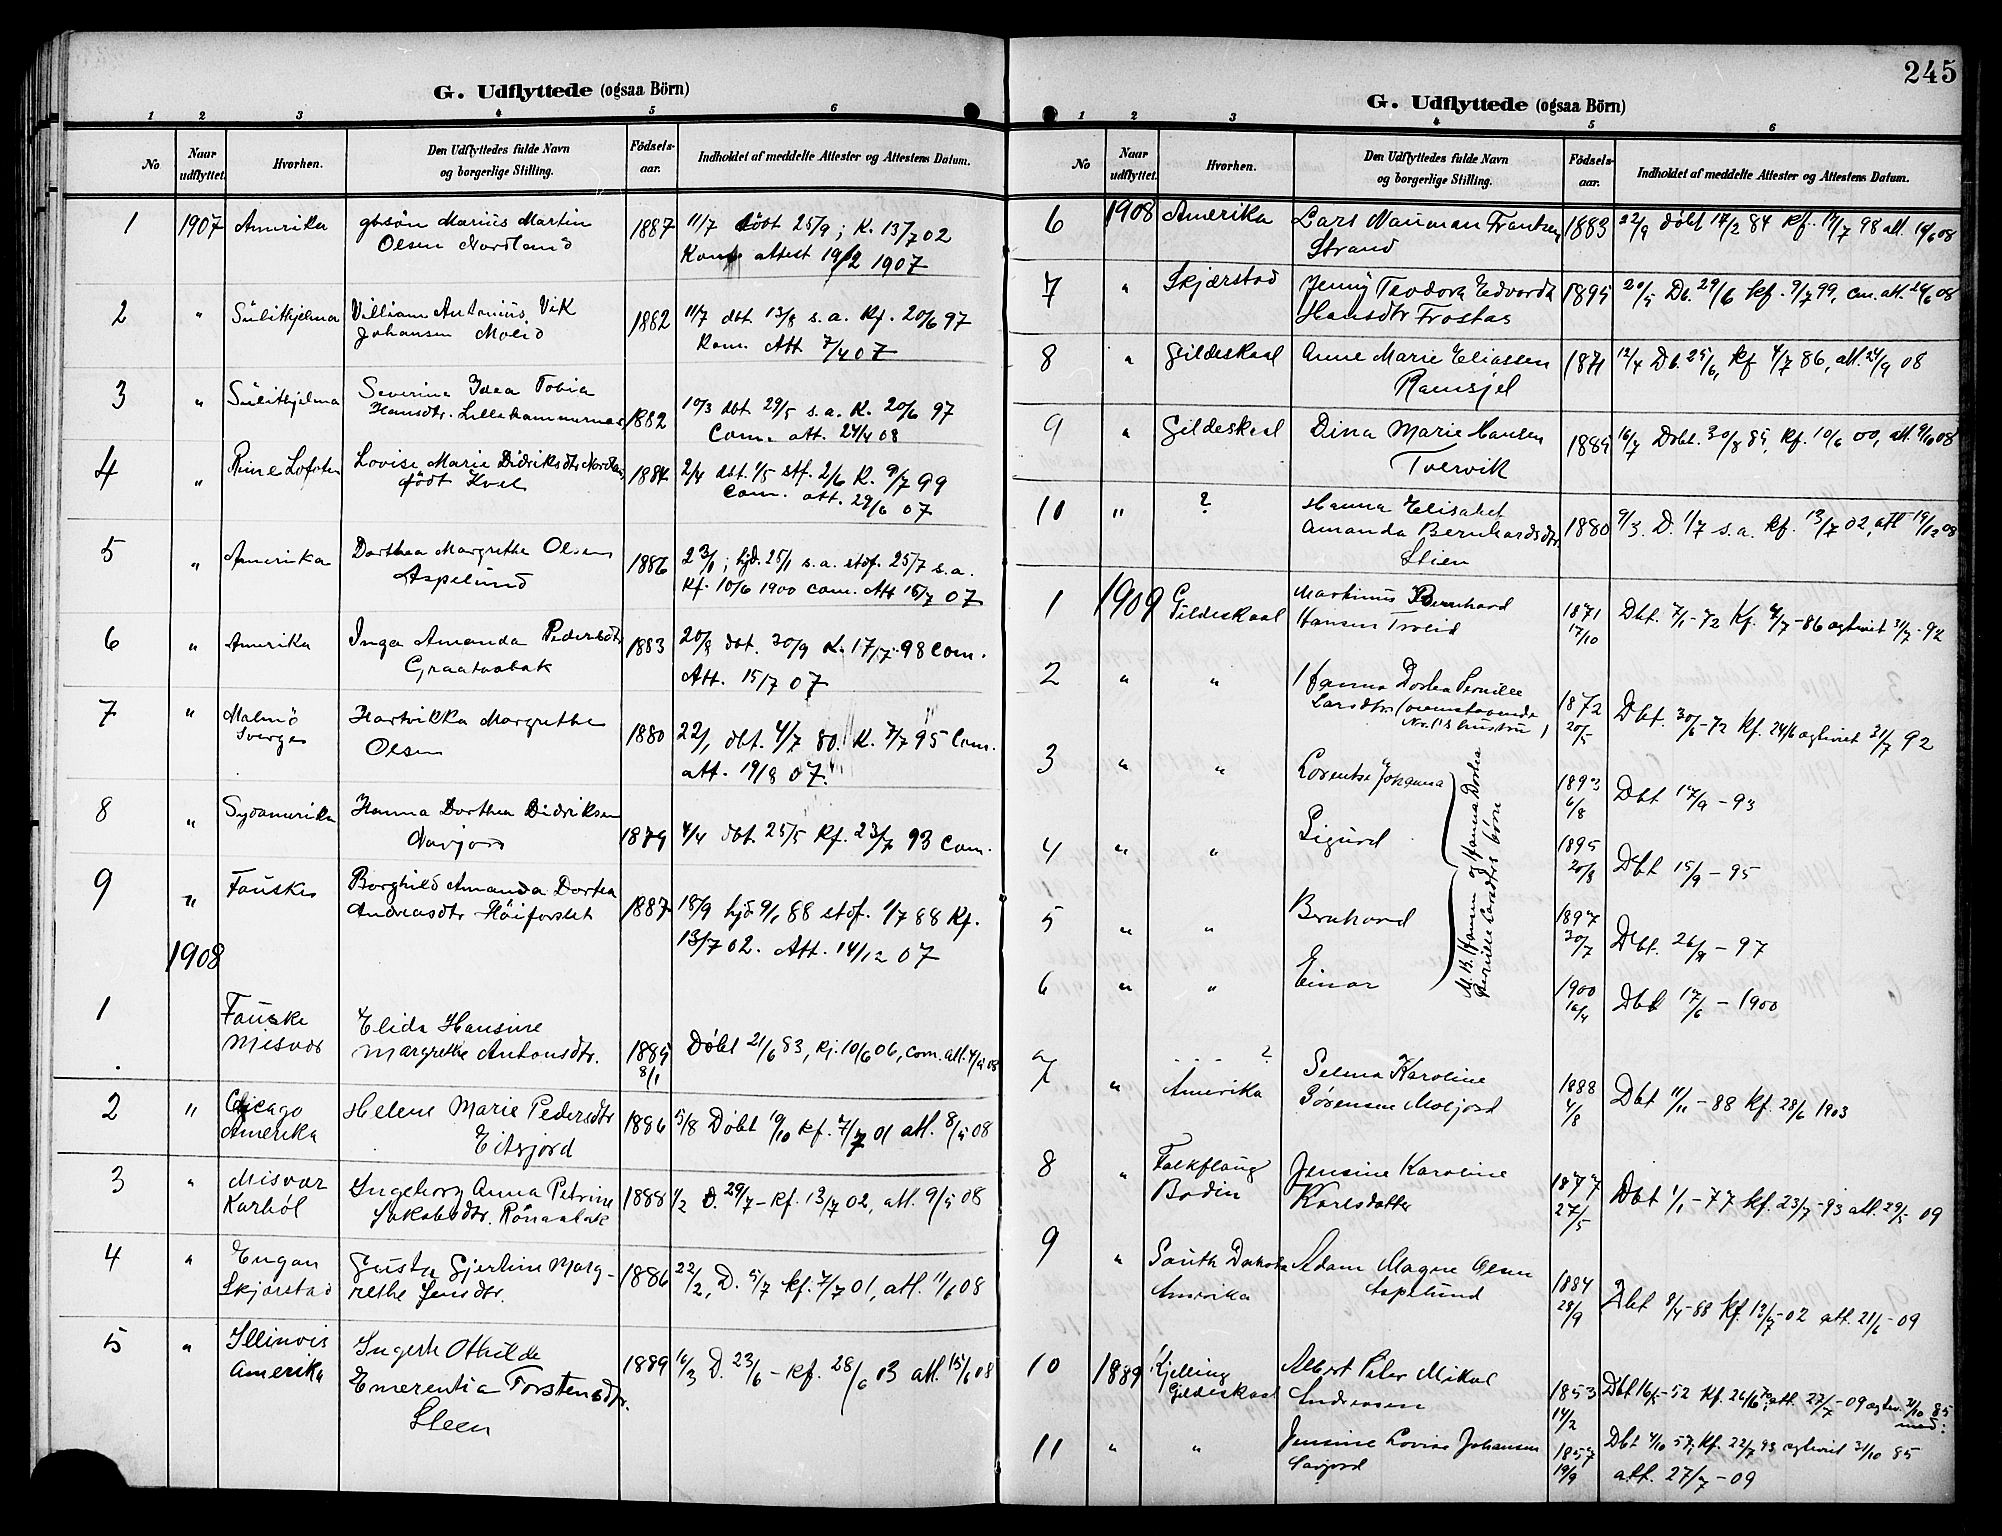 G. Udflyttede (ogsaa Börn)
1 2 3 4 5 6
No
Naar udflyttet.
Hvorhen.
Den Udflyttedes fulde Navn
og borgerlige Stilling.
Födsels-
aar.
Indholdet af meddelte Attester og Attestens Datum.
1 1907 Amerika Marius Martin 1887 11/7 döbt 25/9; K. 13/7 02
Olsen Nordland
attest 19/2 1907
2 " Sulithjelma Villiam Antonius Vik 1882 11/7 dbt 13/8 s.a. Kf. 20/6 97
Johansen Kom. Att 7/4 07
3 " Sulithjelma Severine Tobia 1882 10/3 dbt 29/5 s.a. K. 20/6 97
Hansdtr. Com. att. 24/4 08
4 " Reine Lofoten Lovise Marie Didriksdtr 1884 2/4 dbt. 1/5 stf. 2/6 K. 9/7 99
født Com. att. 29/6 07
5 " Amerika Dorthea Margrethe Olsen 1886 23/1; hjd. 25/1 s.a. stdf. 25/7 s.a.
Aspelund Kf. 10/6 1900 com. Att 15/7 07
6 " Amerika Inga Amanda Pedersdtr 1883 20/8 dbt. 30/9 K. 17/7 98 Com.
Graataabak Att. 15/7 07
7 " Malmö Hartvikka Margrethe 1880 22/1 dbt. 4/7 80. K. 7/7 95 Com.
Sverge Olsen att. 19/8 07.
8 " Sydamerika Hanna Dorthea Didriksen 1879 4/4 dbt. 25/5 Kf. 23/7 93 Com.
9 " Fauske Borghild Amanda Dortea 1887 18/9 hjd 9/1 88 stdf. 1/7 88 Kf.
Andreasdtr Höiforslet 13/7 02. Att. 14/12 07
1908
1 Fauske Elida Hansine
Misvær Margrethe Antonsdtr. 1885 Döbt 21/6 83, kf. 10/6 06, com. att. 08
8/1
2 " Chicago Helene Marie Pedersdtr 1886 5/8 Döbt 19/10 kf. 7/7 01 att. 8/5 08
Amerika Eitfjord
3 " Misvær Ingeborg Anna Petrine 1888 1/2 D. 29/7 - kf. 13/7 02, att. 9/5 08
Karböl Jakobsdtr.
4 " Engan Gusta Gjertine Marg- 1886 22/2, D. 5/7 kf. 7/7 01, att. 11/6 08
Skjærstad rethe Jensdtr.
5 " Illinois Othilde 1889 16/3 D. 23/6 - kf. 28/6 03 att. 15/6 08
Amerika Emerentia Torstensdtr.
Steen
245
G. Udflyttede (ogsaa Börn)
1 2 3 4 5 6
No
Naar udflyttet.
Hvorhen.
Den Udflyttedes fulde Navn
og borgerlige Stilling.
Födsels-
aar.
Indholdet af meddelte Attester og Attestens Datum.
6 1908 Amerika Lars Nauman Frantzen 1883 22/9 döbt 17/2 84 kf. 17/7 98 att. 19/6 08
Strand
7 " Skjærstad Jenny Teodora Edvarda 1895 D. 29/6 kf. 9/7 99, com. att. 08
Hansdtr
8 " Gildeskaal Anne Marie Eliassen 1871 12/4 D. 25/6, kf 4/7 86, att. 24/9 08
9 " Gildeskaal Dina Marie Hansen 1885 16/7 Döbt. 30/8 85, kf. 10/6 00, att. 9/10 08
Tvervik
10 " ? Hanna Elisabet
Amanda Bernhardsdtr 1880 9/3. D. 1/7 s.a. kf. 13/7 02, att 19/12 08
Stien
1 1909 Gildeskaal Martinus Bernhard 1871 Dbt. 7/1-72 Kf. 4/7-86 og 31/7-92
Hansen 17/10
2 " " Hanna Dortea Pernille 1872 Dbt. 30/6-72 Kf. 24/6 og 31/7 92
Larsdtr (ovenstaaende 20/5
No. 1's hustru)
M. B. Hansen og Hanna Dortea
Pernille Larsdtrs börn
3 " " Lorentse Johanna 1893 Dbt 17/9-93
6/8
4 " " Sigurd 1895 Dbt 15/9-95
20/8
5 " " Bernhard 1897 Dbt. 26/9-97
30/7
6 " " Einar 1900 Dbt 17/6-1900
16/4
7 " ? Selma Karoline 1888 Dbt 11/11-88 kf. 28/6 1903
Amerika Sörensen 4/8
8 " Falkflaug Jensine Karoline 1877 Dbt 1/1-77 kf. 23/7-93 att. 29/5 09
Bodin Karlsdatter 27/5
9 " South Dakota Adam Magne Olsen 1884 Dbt 3/4-88 Kf. 13/7-02 att. 21/6-09
Amerika Aspelund 28/9
10 1989 Kjelling Albert Peter Mikal 1853 Dbt 16/5-52 Kf. att. 27/7-09 31/10 85
Gildeskaal Andreasen 14/2 med:
11 " " Jensine Lovise Johansen 1857 Dbt 4/10 57, kf. 22/7 93 og 31/10 85
19/9 att. 27/7-09